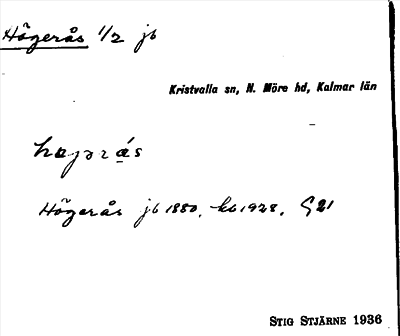 Högerås 1/2 jb
Kristvalla sn, N. Möre hd, Kalmar län
Högerås jb 1880, kb 1928, G21
STIG STJÄRNE 1936